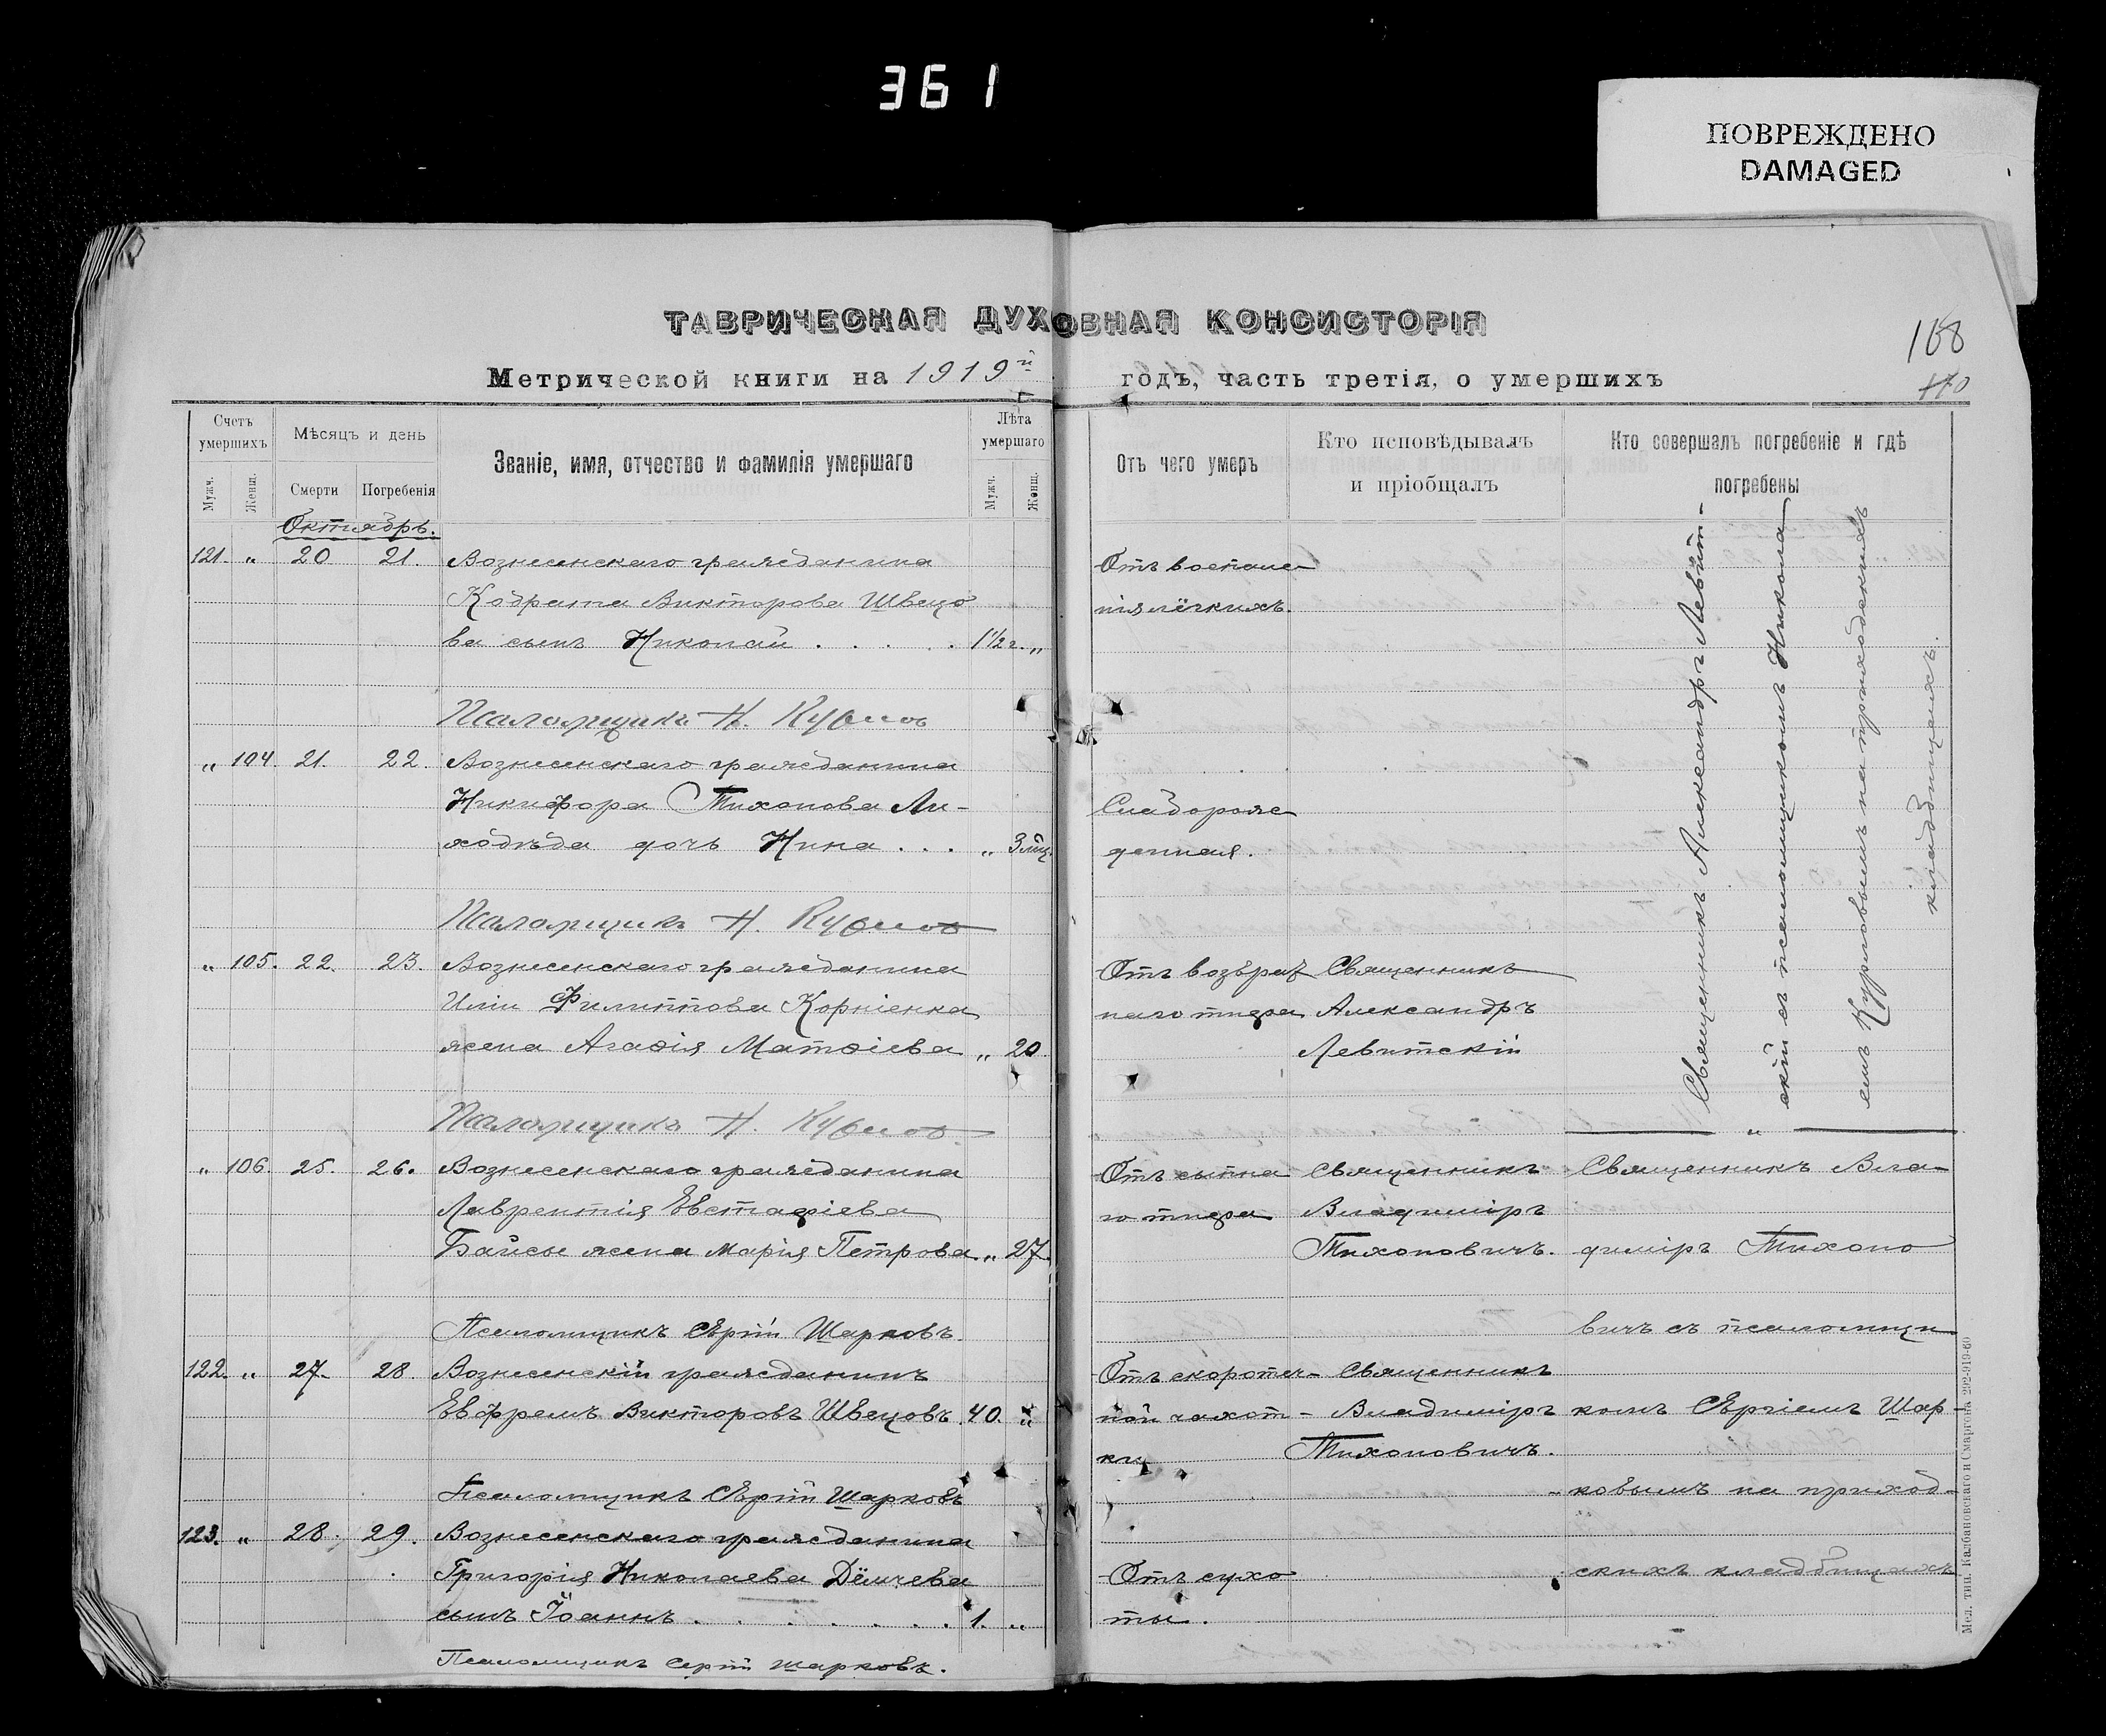 361
ПОВРЕЖДЕНО
DAMAGED
ТАВРИЧЕСКАЯ ДУХОВНАЯ КОНСИСТОРІЯ
168
110
Метрической книги на 1919й годъ, часть третія, о умершихъ
Счетъ умершихъ
Мужч.
Женщ.
Мѣсяцъ и день
Смерти
Погребенія
Званіе, имя, отчество и фамилія умершаго
Лѣта умершаго
Мужч.
Женщ.
Отъ чего умеръ
Кто исповѣдывалъ
и пріобщалъ
Кто совершалъ погребеніе и гдѣ
погребены
Октябрь.
121. " 20 21. Вознесенскаго гражданина
Кодрата Викторова Швецо
ва сынъ Николай . . . . . 1 1/2 г. "
Отъ воспале
нія лёгкихъ.
Псаломщикъ Н.
" 104. 21. 22. Вознесенскаго гражданина
Никифора Тихонова Ли-
ходѣда дочь Нина . . . " 3 мѣц.
Слаборож
денная.
Псаломщикъ Н.
" 105. 22. 23. Вознесенскаго гражданина
Иліи Филиппова Корніенка
жена Агаѳія Матѳіева " 20
Отъ возврат
наго тифа
Священникъ
Александръ
Левитскій
Псаломщикъ Н.
Священникъ Александръ Левит-
скій съ псаломщикомъ Никола
емъ на приходскихъ
кладбищахъ.
"
" 106. 25. 26. Вознесенскаго гражданина
Лаврентія Евстафіева
Байсы жена Марія Петрова " 27.
Отъ сыпна
го тифа
Священникъ
Владиміръ
Тихоновичъ.
Священникъ Вла-
диміръ Тихоно
вичъ съ псаломщи
комъ Сѣргіемъ Шар-
ковымъ на приход-
скихъ кладбищахъ
Псаломщикъ Сѣргій Шарковъ.
122. " 27. 28. Вознесенскій гражданинъ
Евфремъ Викторовъ Швецовъ. 40. "
Отъ скоротеч-
ной чахот-
ки
Священникъ
Владиміръ
Тихоновичъ.
Псаломщикъ Сѣргій Шарковъ
123. " 28. 29. Вознесенскаго гражданина
Григорія Николаева Дёмчева
сынъ Іоаннъ . . . . . . . 1. "
Отъ сухо
ты.
Псаломщикъ Сергій Шарковъ.
Мел. тип. Калбановскаго и Смаргона 202-919-60